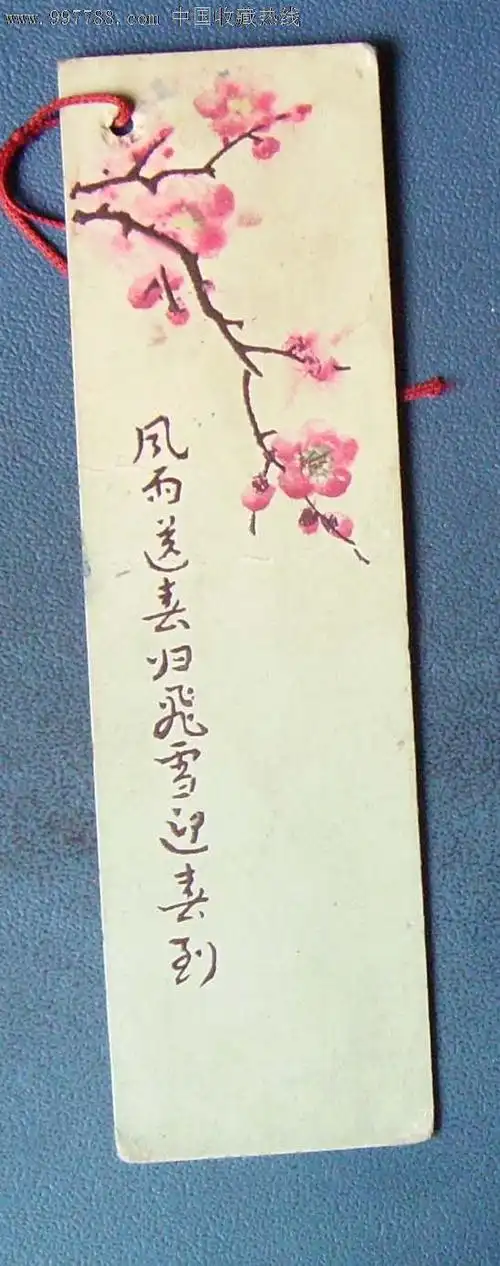 www.997788.com 中国收藏热线
风雨送春归飛雪迎春到